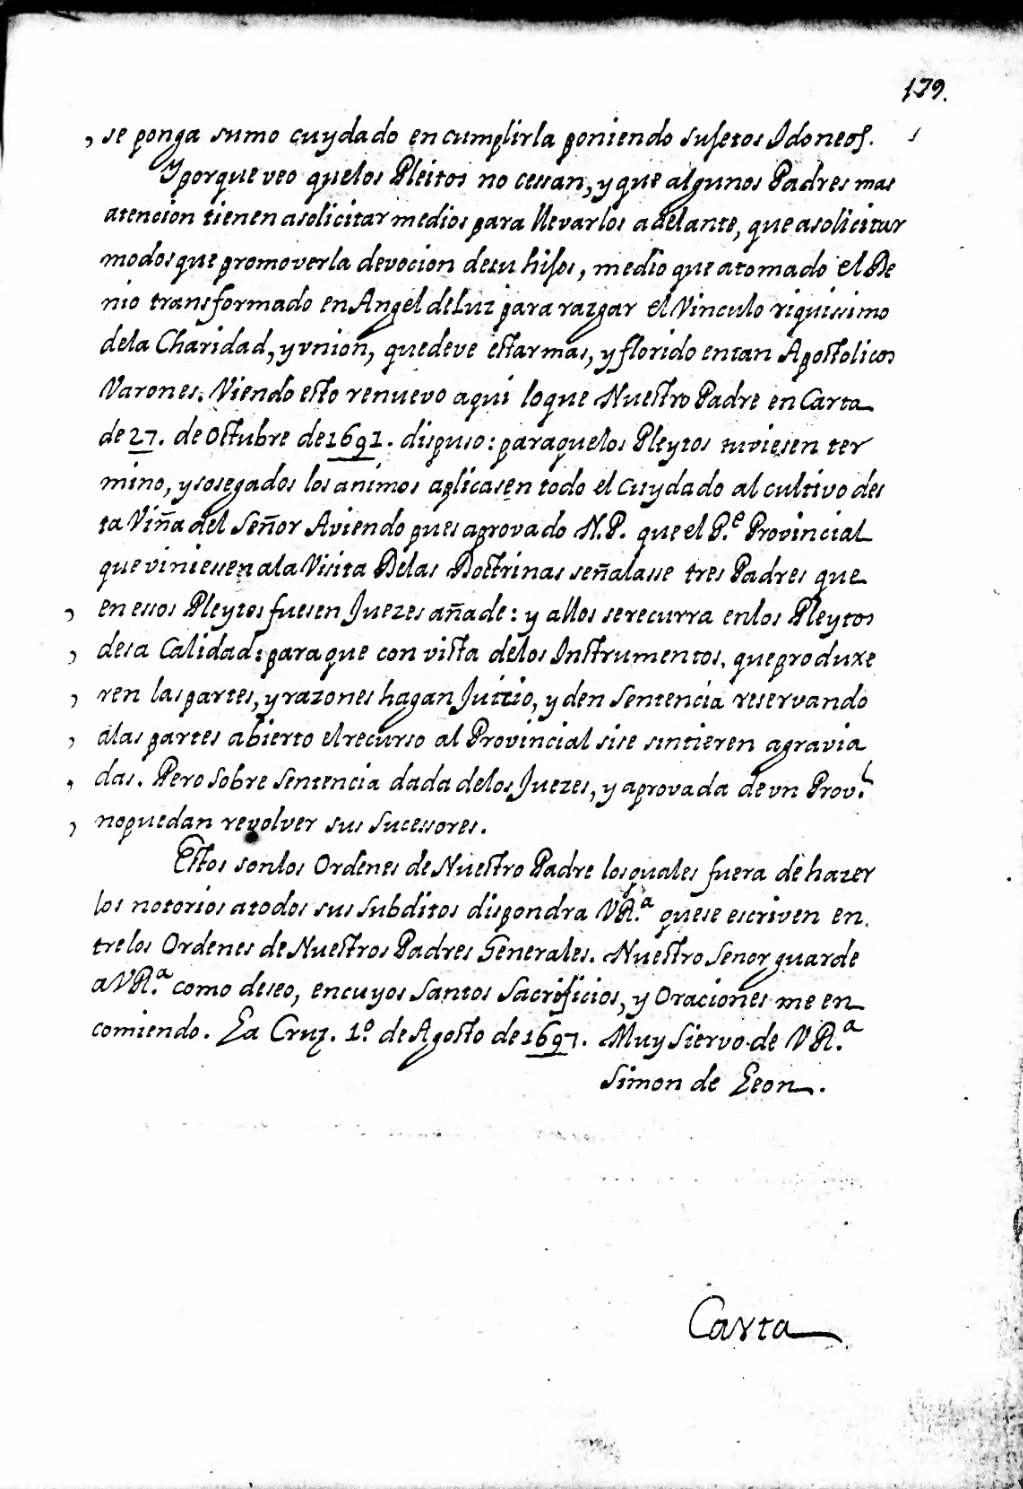 179.
, se ponga sumo cuydado en cumplirla poniendo sujetos Idoneos.
Y porque veo quelos Pleitos no cessan, y que algunos Padres mas
atencion tienen asolicitar medios para llevarlos adelante, que asolicitar
modos que promoverla devocion desu hijos, medio que atomado el De
nio transformado en Angel deLuz para razgar el Vinculo riquissimo
dela Charidad, y vnion, quedeve estar mas, y florido entan Apostolicos
Varones. Viendo esto renuevo aqui loque Nuestro Padre en Carta
de 27. de Octubre de 1691. dispuso: paraquelos Pleytos tuviesen ter
mino, y sosegados los animos aplicasen todo el cuydado al cultivo des
ta Viña del Señor Aviendo pues aprovado N.P. que el P.e Provincial
que viniessen ala Visita Delas Doctrinas señalasse tres Padres que
, en essos Pleytos fuesen Juezes añade: y allos serecurra enlos Pleytos
, desa Calidad: paraque con vista delos Instrumentos, que produxe
, ren las partes, y razones hagan Juizio, y den Sentencia reservando
, alas partes abierto el recurso al Provincial sise sintieren agravia
, das. Pero sobre Sentencia dada delos Juezes, y aprovada de vn Prov.l
, nopuedan revolver sus sucessores.
Estos sonlos Ordenes de Nuestro Padre los quales fuera de hazer
los notorios atodos sus subditos dispondra VR.a quese escriven en
tre los Ordenes de Nuestros Padres Generales. Nuestro Senor guarde
a VR.a como deseo, en cuyos Santos Sacrificios, y Oraciones me en
comiendo. La Cruz. 1.o de Agosto de 1697. Muy Siervo de VR.a
Simon de Leon.
Carta